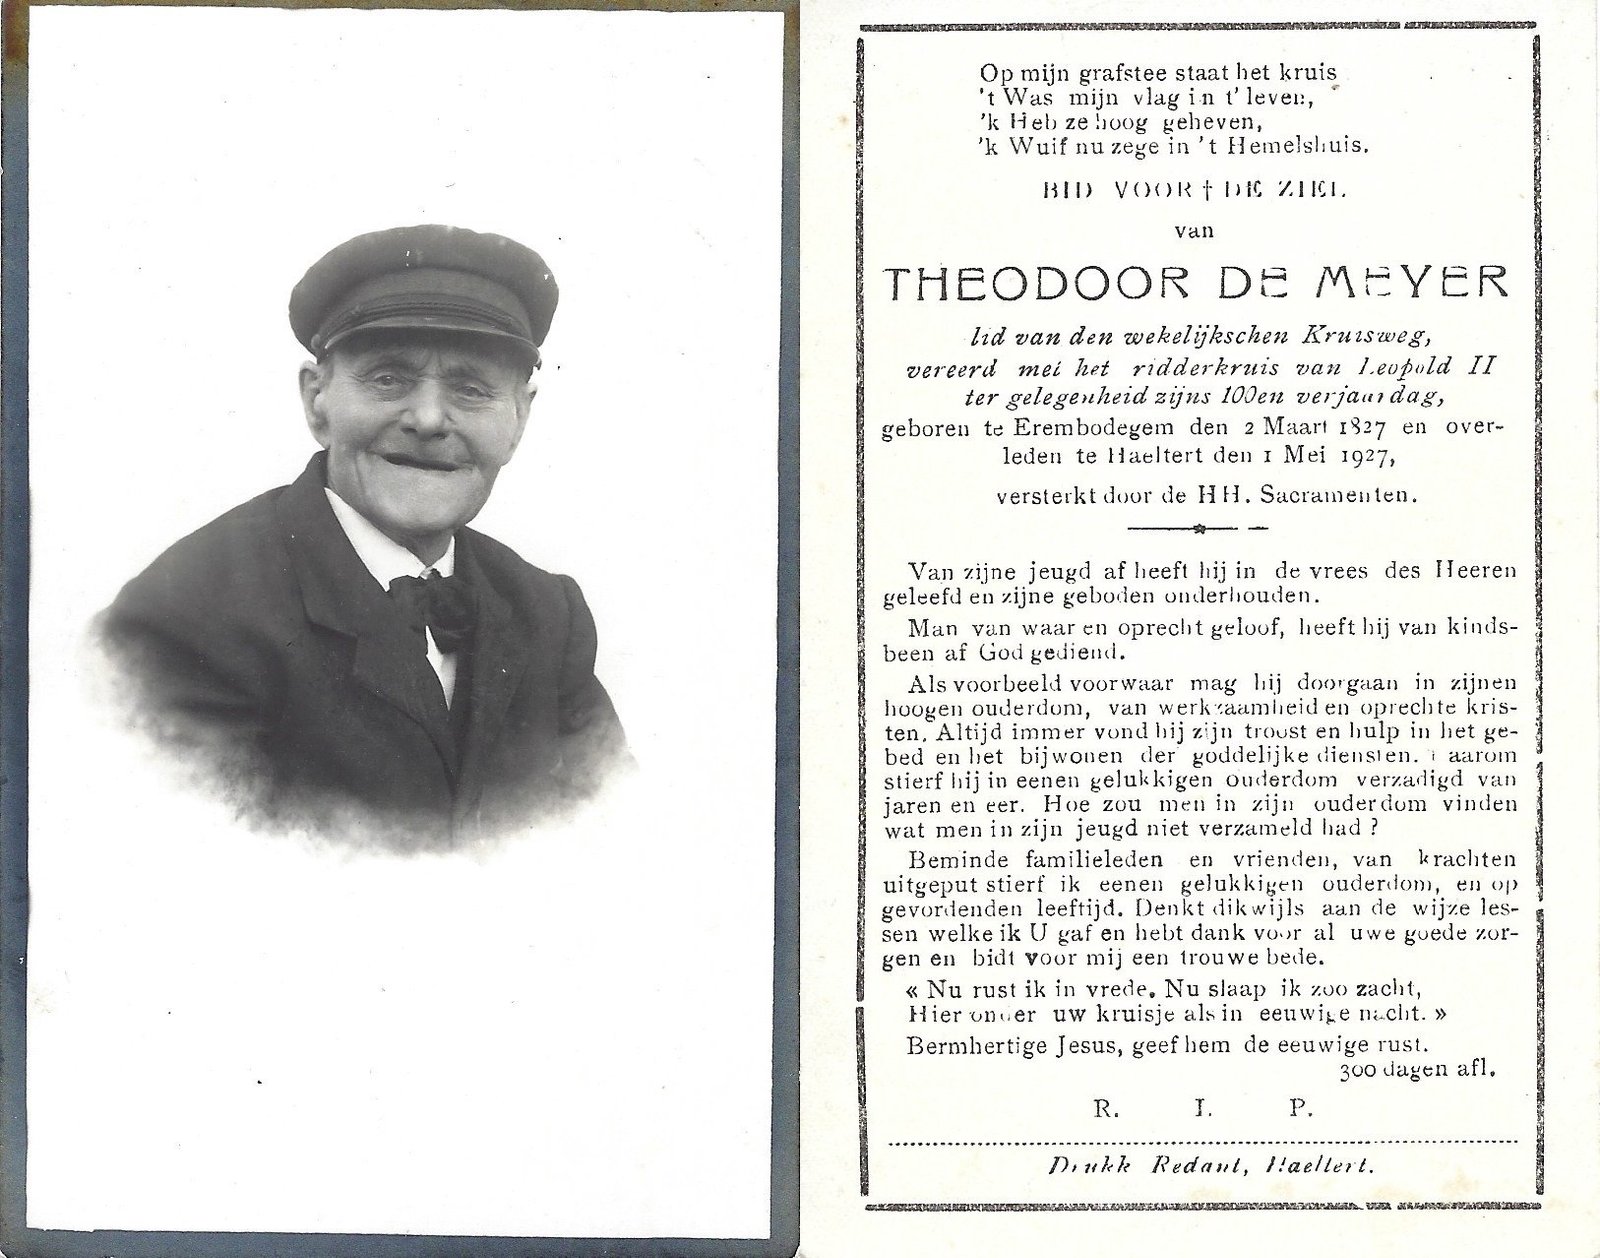 Op mijn grafstee staat het kruis
't Was mijn vlag in t' leven,
'k Heb ze hoog geheven,
'k Wuif nu zege in 't Hemelshuis.
BID VOOR † DE ZIEL
van
THEODOOR DE MEYER
lid van den wekelijkschen Kruisweg,
vereerd met het ridderkruis van Leopold II
ter gelegenheid zijns 100en verjaardag,
geboren te Erembodegem den 2 Maart 1827 en over-
leden te Haeltert den 1 Mei 1927,
versterkt door de HH. Sacramenten.
Van zijne jeugd af heeft hij in de vrees des Heeren
geleefd en zijne geboden onderhouden.
Man van waar en oprecht geloof, heeft hij van kinds-
been af God gediend.
Als voorbeeld voorwaar mag hij doorgaan in zijnen
hoogen ouderdom, van werkzaamheid en oprechte kris-
ten. Altijd immer vond hij zijn troost en hulp in het ge-
bed en het bijwonen der goddelijke diensten. aarom
stierf hij in eenen gelukkigen ouderdom verzadigd van
jaren en eer. Hoe zou men in zijn ouderdom vinden
wat men in zijn jeugd niet verzameld had ?
Beminde familieleden en vrienden, van krachten
uitgeput stierf ik eenen gelukkigen ouderdom, en op
gevordenden leeftijd. Denkt dikwijls aan de wijze les-
sen welke ik U gaf en hebt dank voor al uwe goede zor-
gen en bidt voor mij een trouwe bede.
« Nu rust ik in vrede. Nu slaap ik zoo zacht,
Hier onder uw kruisje als in eeuwige nacht. »
Bermhertige Jesus, geef hem de eeuwige rust.
300 dagen afl.
R. I. P.
Drukk Redant, Haeltert.